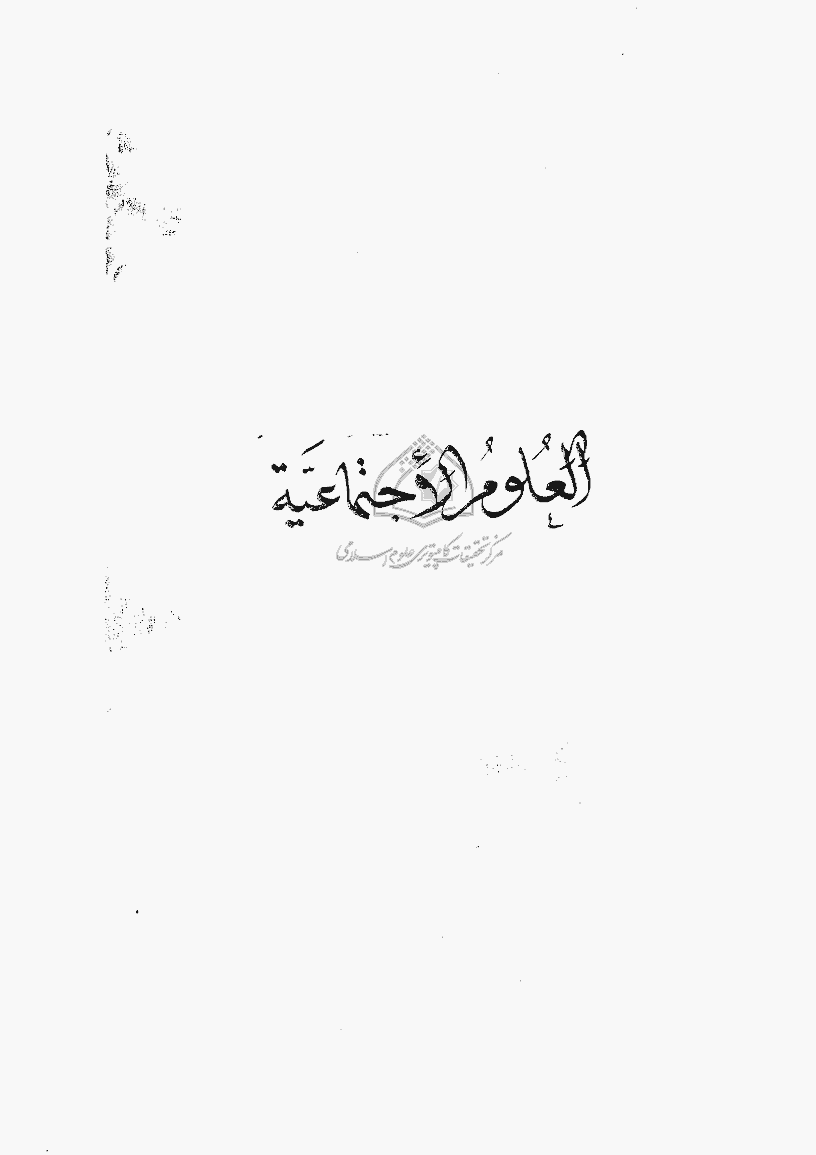 العُلومُ الأَجتماعيَّة
مرکز تحقیقات کامپیوتری علوم اسلامی